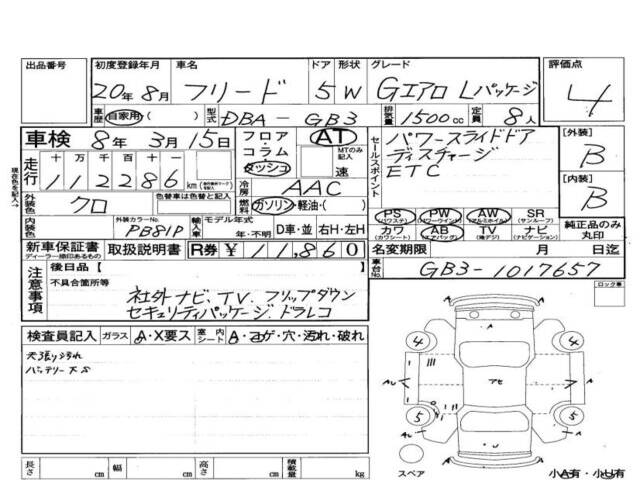 出品番号 初度登録年月 車名 ドア 形状 グレード 評価点
20年 8月 フリード 5 W Gエアロ Lパッケージ 4
車歴 自家用 ( ) 型式 DBA-GB3 排気量 1500cc 定員 8人
車検 8年 3月 15日 フロア コラム ダッシュ AT MTのみ記入 速
セールスポイント パワースライドドア
ディスチャージ
ETC
[外装] B
[内装] B
走行 十 万 千 百 十 一
112286 km
冷房 AAC
燃料 ガソリン・軽油・( )
外装色 クロ 色替車は色替と記入
内装色 外装カラーNo. PB81P 輸入車 モデル年式 年・不明 D車・並 右H・左H
PS (パワステ) PW (パワーウインド) AW (アルミホイル) SR (サンルーフ)
カワ (カワシート) AB (エアバッグ) TV (地デジ) ナビ (ナビゲーション)
純正品のみ丸印
新車保証書 ディーラー捺印あるもの 取扱説明書 R券 ¥11,860
名変期限 月 日迄
車台No. GB3-1017657
現在色を記入→
注意事項 後日品【
不具合箇所等
社外ナビ、TV、フリップダウン
セキュリティパッケージ、ドラレコ
ロック車
検査員記入 ガラス A・X要ス 室内シート A・コゲ・穴・汚れ・破れ
天張り汚れ
バッテリー不良
4 4
A A
AU アセ A
5 5
AU A
スペア 小A有・小U有
長さ cm 幅 cm 高さ cm 積載量 kg